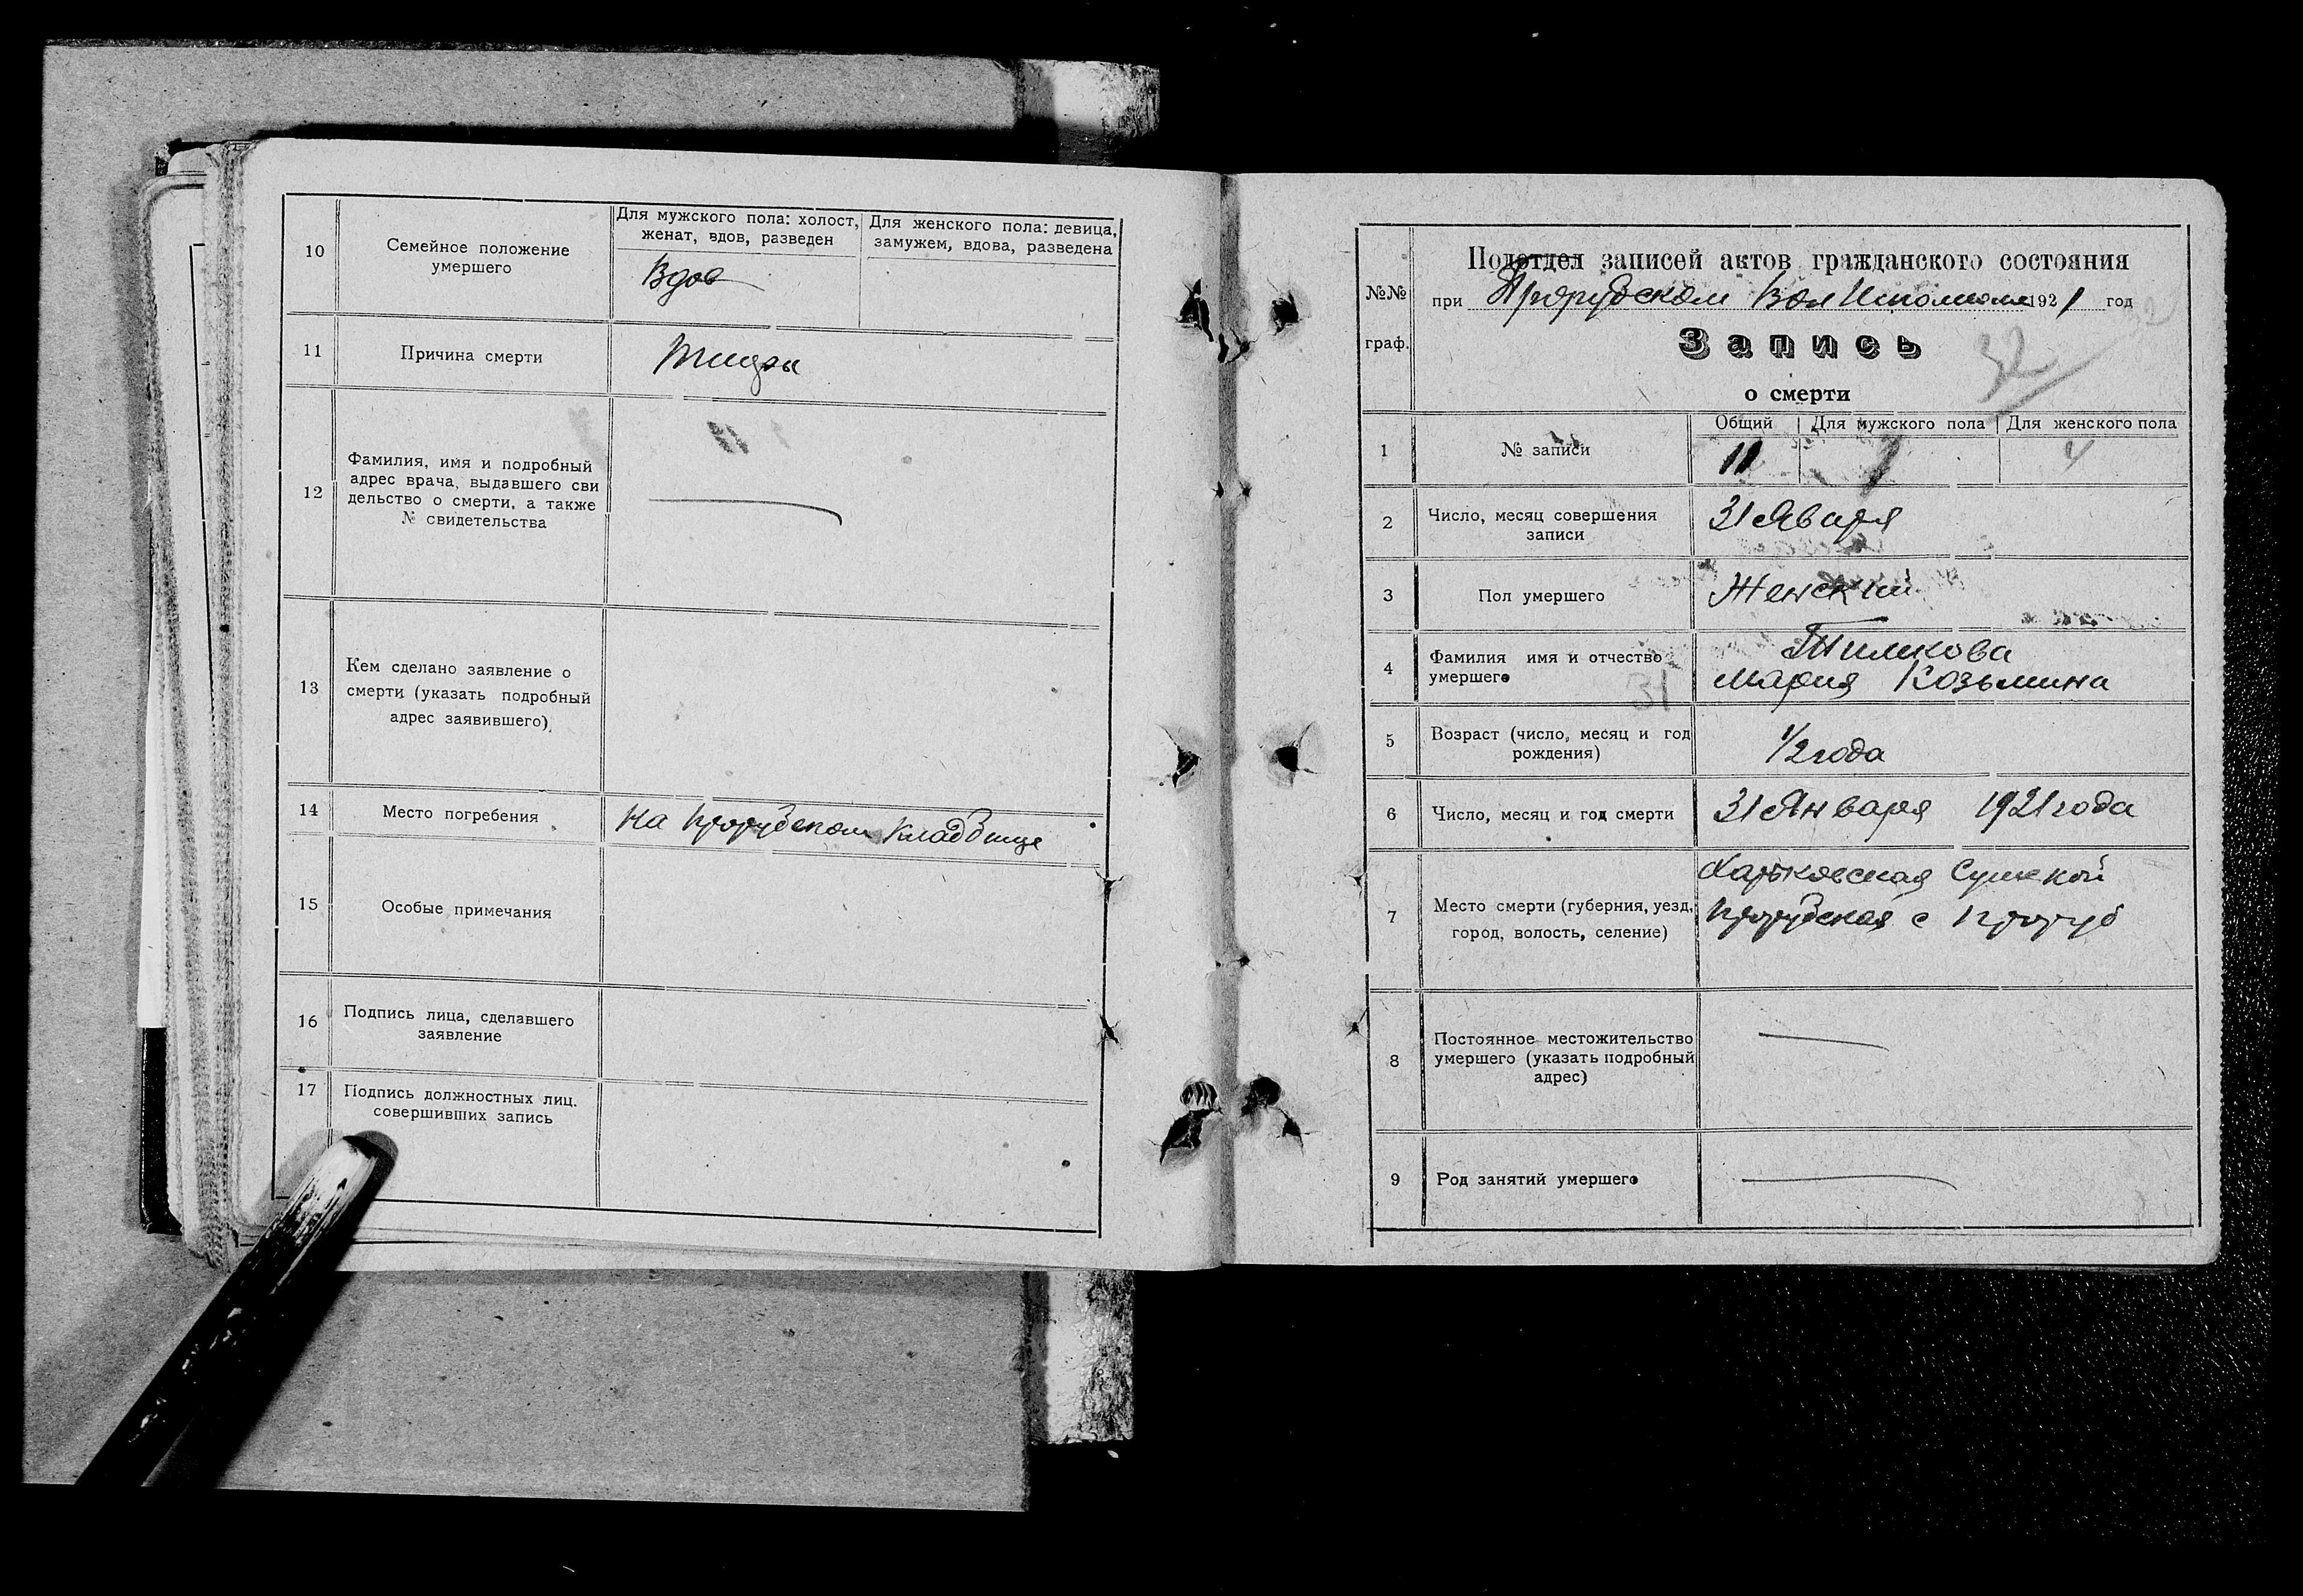 10
Семейное положение
умершего
Для мужского пола: холост,
женат, вдов, разведен
Для женского пола: девица,
замужем, вдова, разведена
Вдов
11
Причина смерти
12
Фамилия, имя и подробный
адрес врача, выдавшего сви
дельство о смерти, а также
№ свидетельства
13
Кем сделано заявление о
смерти (указать подробный
адрес заявившего)
14
Место погребения
На Прорубском Кладбище
15
Особые примечания
16
Подпись лица, сделавшего
заявление
17
Подпись должностных лиц,
совершивших запись
№№
граф.
Подотдел записей актов гражданского состояния
при Прорубском Вол 1921 год
Запись
32
о смерти
1
№ записи
Общий
Для мужского пола
Для женского пола
11
4
2
Число, месяц совершения
записи
31 Января
3
Пол умершего
Женский
4
Фамилия имя и отчество
умершего
31
Мария Козьмина
5
Возраст (число, месяц и год
рождения)
1/2 года
6
Число, месяц и год смерти
31 Января 1921 года
7
Место смерти (губерния, уезд,
город, волость, селение)
Харьковская Сумской
Прорубская с Проруб
8
Постоянное местожительство
умершего (указать подробный
адрес)
9
Род занятий умершего